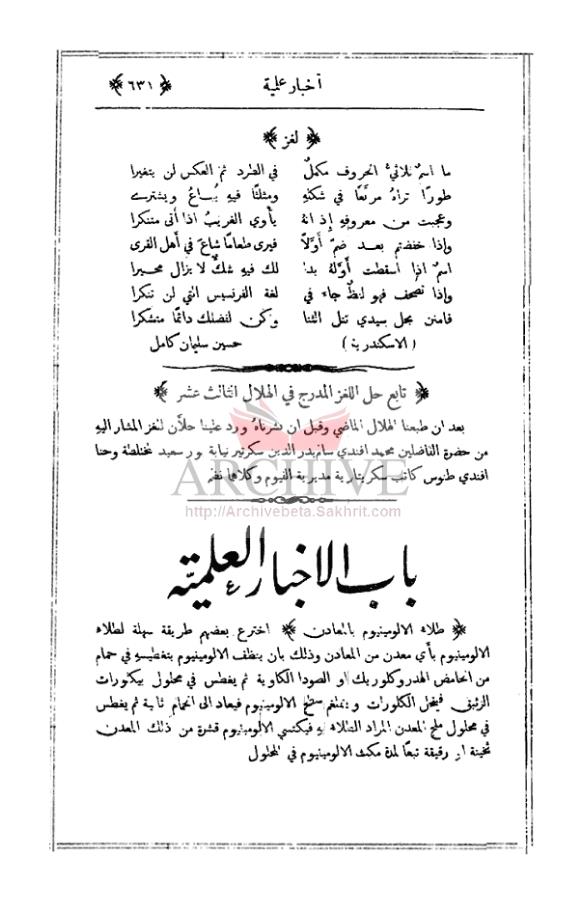 أخبار علمية ﴿ ٦٣١ ﴾
﴿ لغز ﴾
ما اسمٌ ثلاثيُّ الحروف مكملٌ في الطرد ثم العكس لن يتغيرا
طورًا تراهُ مربَّعًا في شكلهِ ومثلثًا فيهِ يُباعُ ويشترى
وعجبت من معروفهِ إِذ انهُ يأوي الغريبُ اذا أتى متنكرا
واذا خفضتم بعد ضمّ أَوَّلاً فيرى طعامًا شاعَ في أهل القرى
اسمٌ اذا أسقطت أوَّلهُ بدا لك فيهِ شكٌّ لا يزال محيرا
واذا تصحف فهو لفظٌ جاء في لغة الفرنسيس التي لن تنكرا
فامنن بحل سيدي تنل الثنا وكن لفضلك دائمًا متشكرا
( الاسكندرية ) حسين سليمان كامل
﴿ تابع حل اللغز المدرج في الهلال الثالث عشر ﴾
بعد ان طبعنا الهلال الماضي وقبل ان نشرناهُ ورد علينا حلاَّن للغز المشار اليهِ
من حضرة الفاضلين محمد افندي بدر الدين سكرتير نيابة بور سعيد المختلطة وحنا
افندي طنوس كاتب سكرتارية مديرية الفيوم وكلاها نظم
ARCHIVE
http://Archivebeta.Sakhrit.com
باب الاخبار العلميَّة
﴿ طلاء الالومينيوم بالمعادن ﴾ اخترع بعضهم طريقة سهلة لطلاء
الالومينيوم بأي معدن من المعادن وذلك بان ينظف الالومينيوم بتغطيسهِ في حمام
من الحامض الهدروكلوريك او الصودا الكاوية ثم يغطس في محلول بيكلورات
الزئبق فينحل الكلورات ويتملغم سطح الالومينيوم فيعاد الى الحمام ثانية ثم يغطس
في محلول ملح المعدن المراد الطلاء به فيكتسي الالومينيوم قشرة من ذلك المعدن
ثخينة او رقيقة تبعًا لمدة مكث الالومينيوم في المحلول